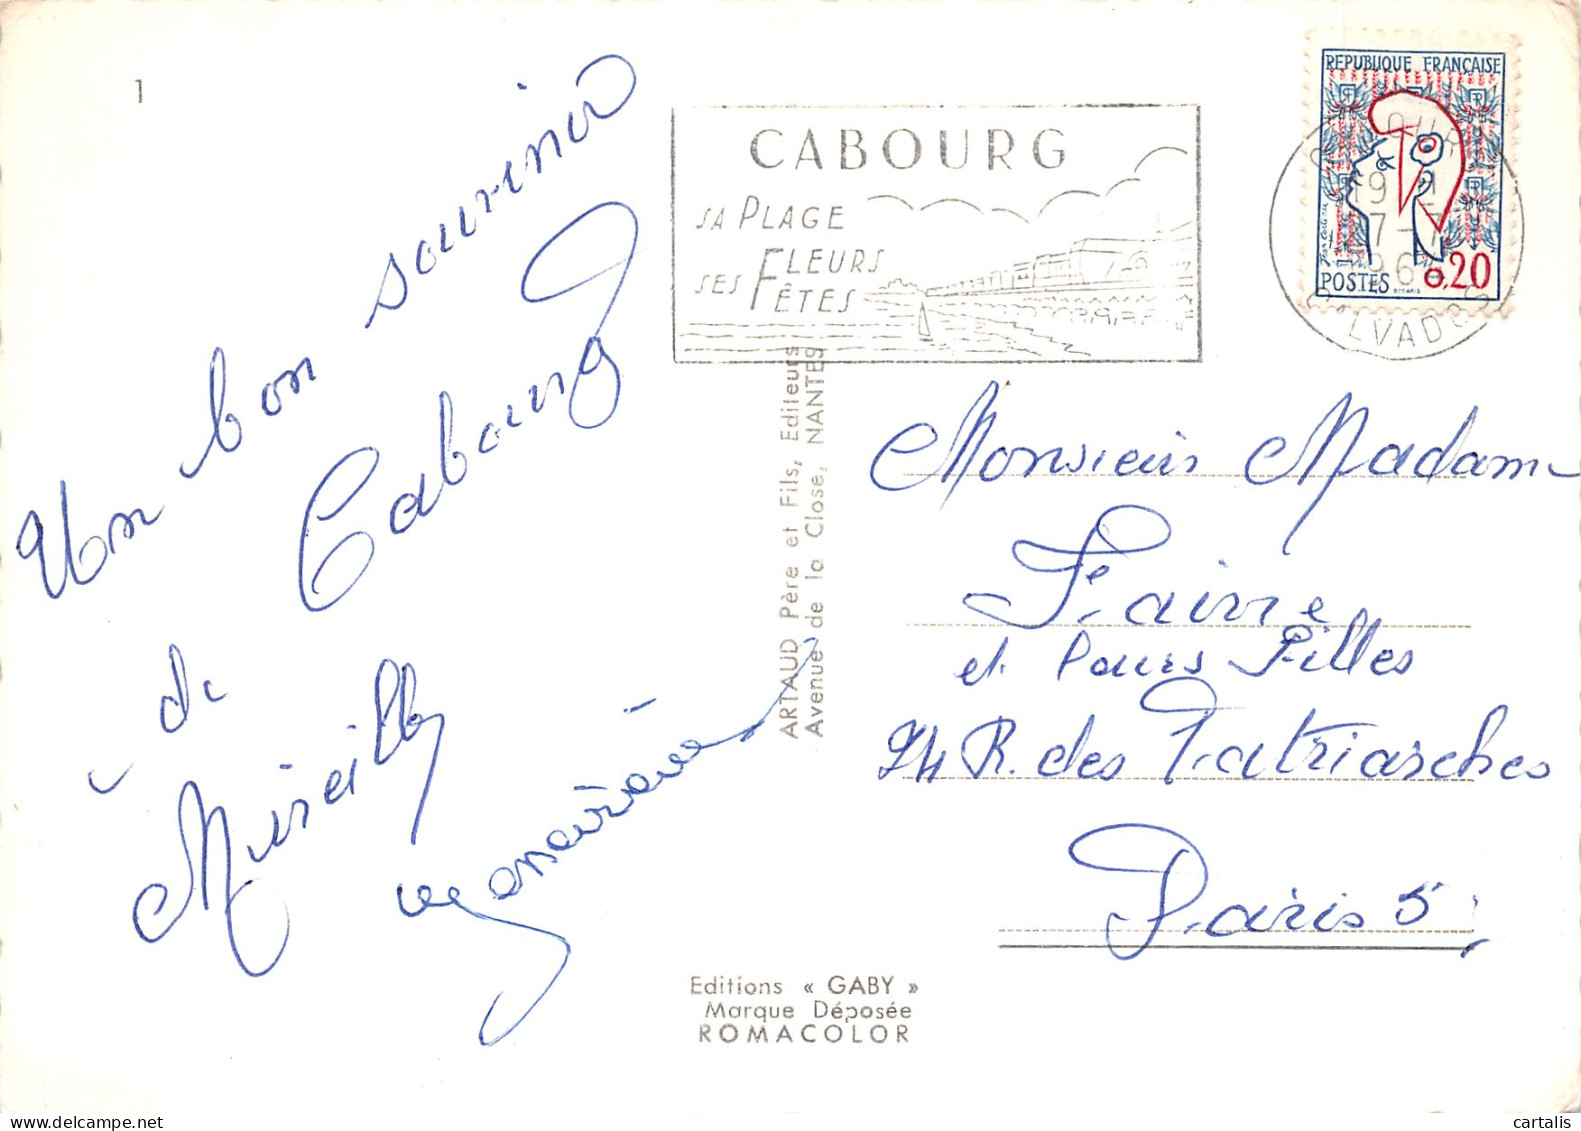 1
Un bon souvenir
de
Cabourg
Mireille
CABOURG
SA PLAGE
SES FLEURS
FÊTES
REPUBLIQUE FRANÇAISE
POSTES 0,20
19 H
7-7
CALVADOS
ARTAUD Père et Fils, Editeurs
Avenue de la Close, NANTES
Monsieur Madame
et Leurs Filles
24 R. des Patriarches
Paris 5
Editions « GABY »
Marque Déposée
ROMACOLOR
cartalis